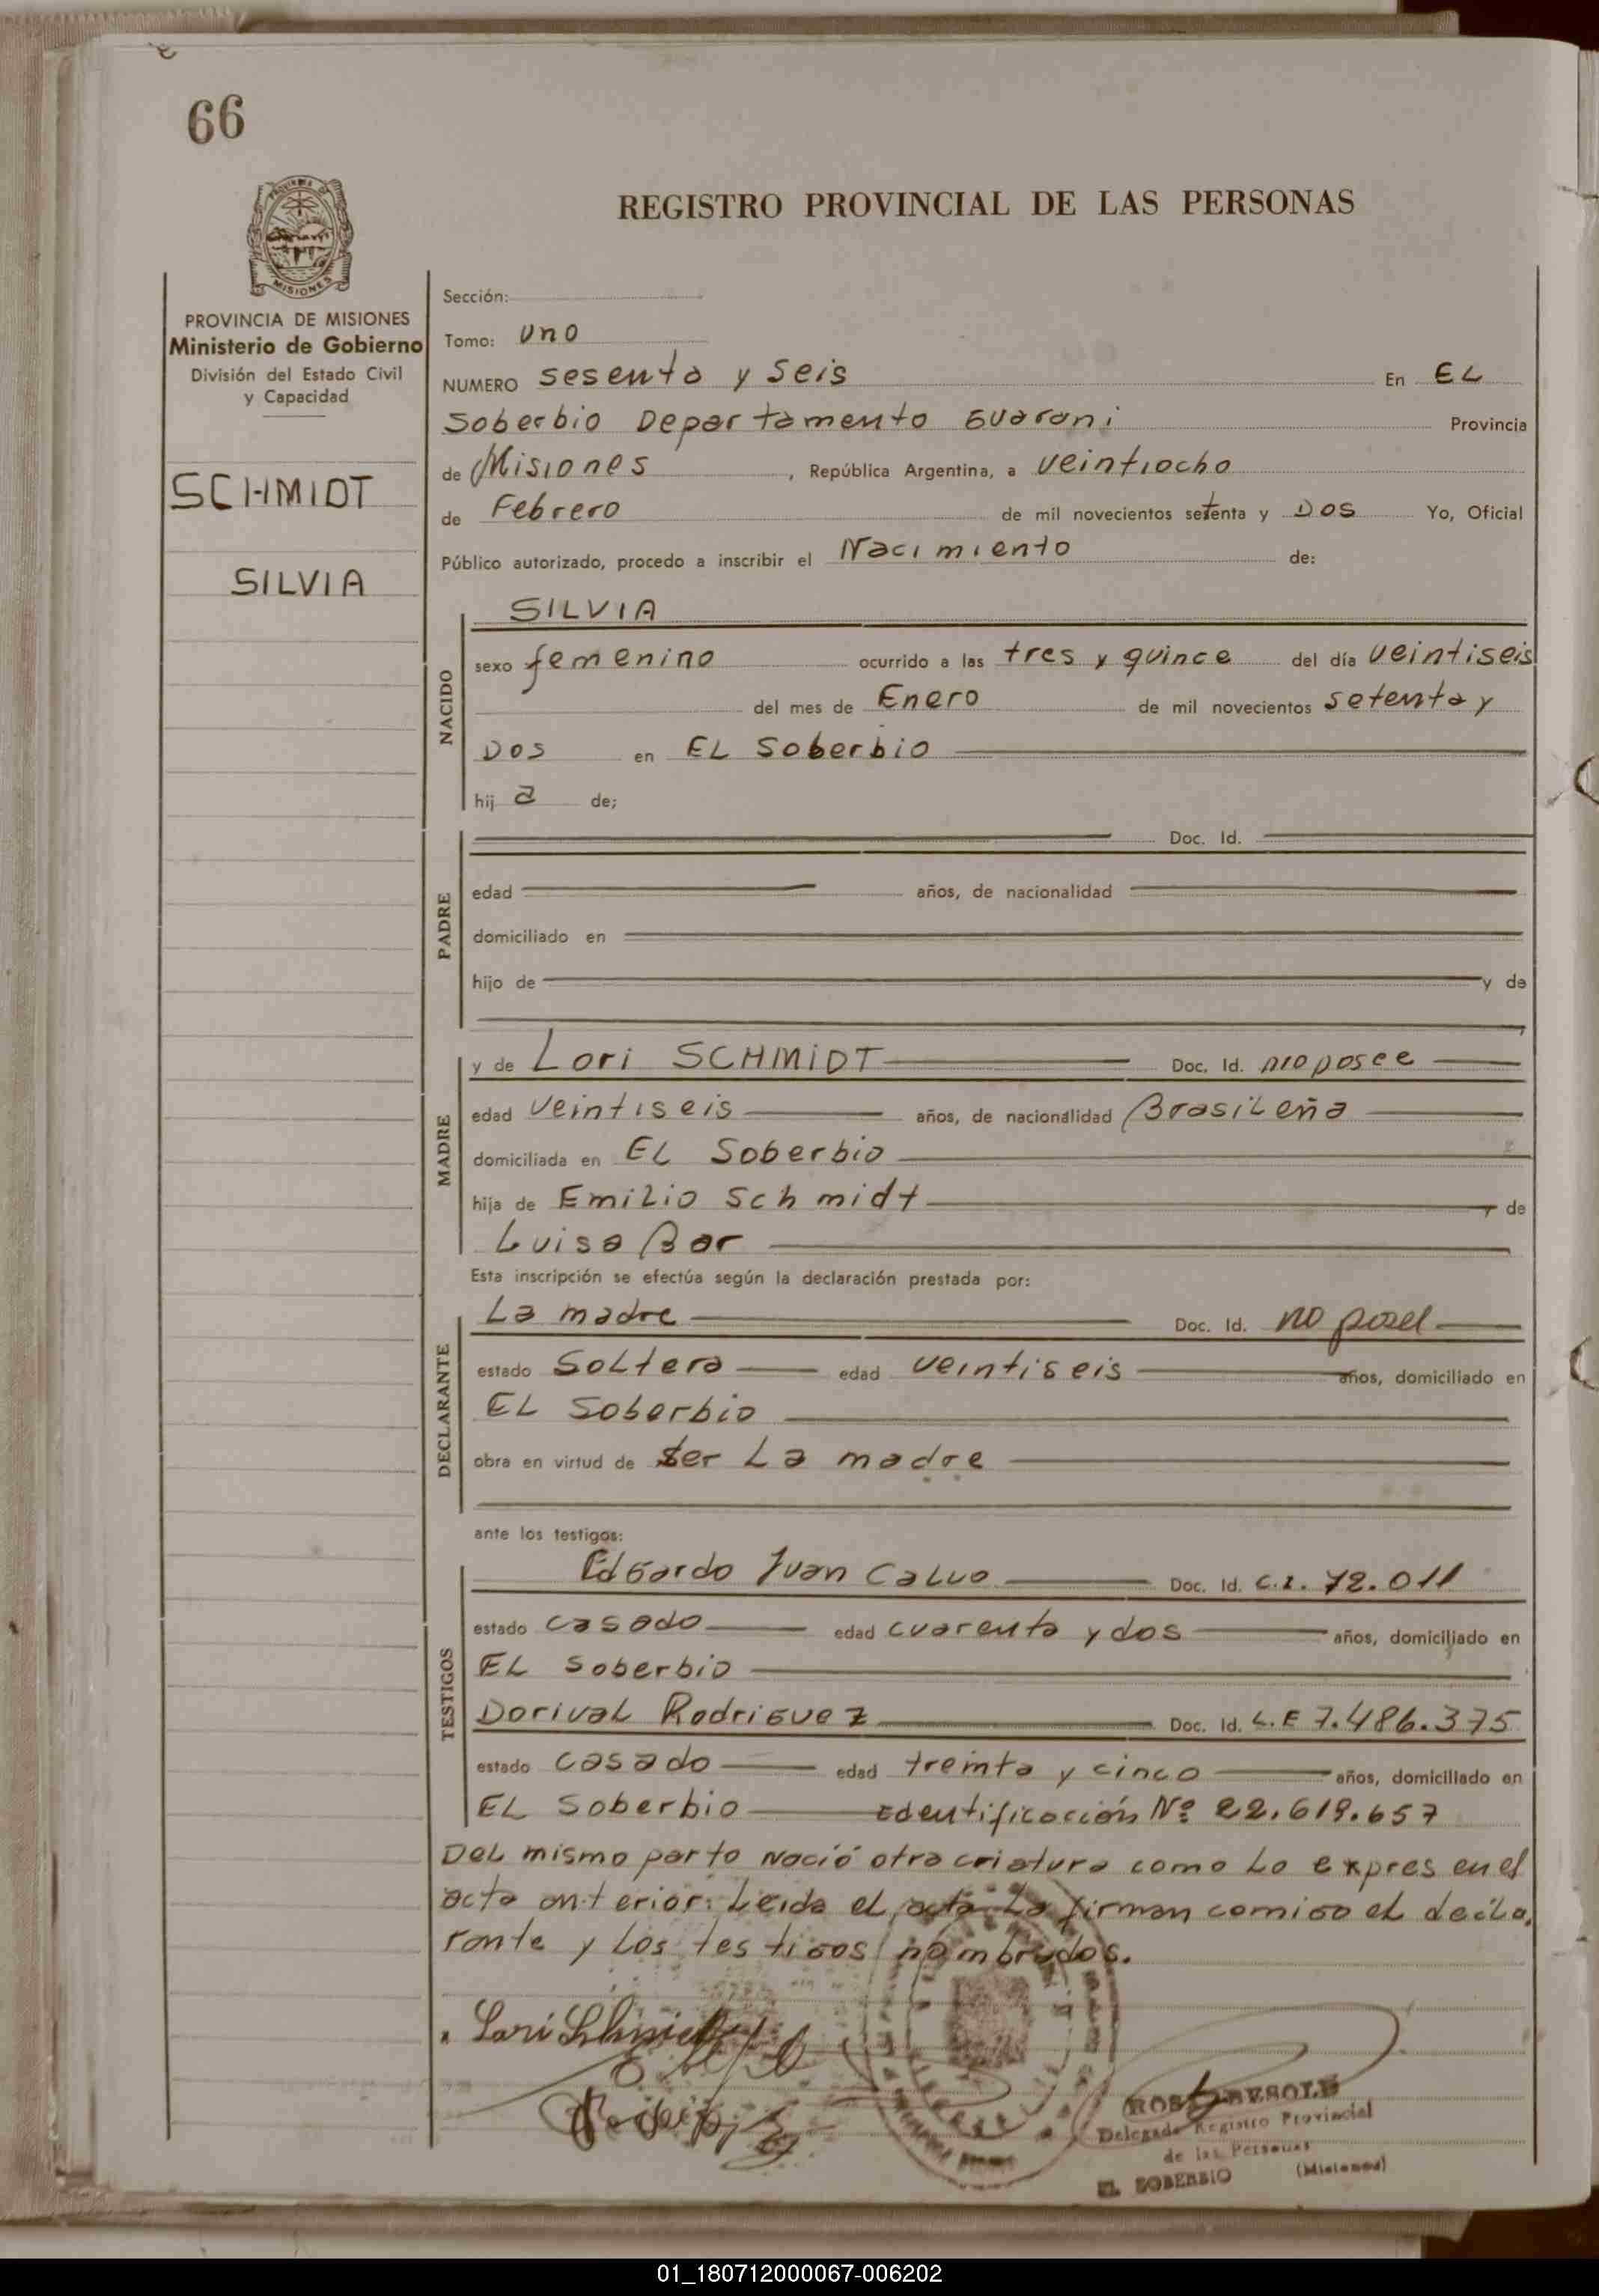 66
PROVINCIA DE
MISIONES
REGISTRO PROVINCIAL DE LAS PERSONAS
PROVINCIA DE MISIONES
Ministerio de Gobierno
División del Estado Civil
y Capacidad
SCHMIDT
SILVIA
Sección:
Tomo: uno
NUMERO sesenta y seis En EL
Soberbio Departamento Guarani Provincia
de Misiones, República Argentina, a veintiocho
de Febrero de mil novecientos setenta y Dos Yo, Oficial
Público autorizado, procedo a inscribir el Nacimiento de:
NACIDO
SILVIA
sexo femenino ocurrido a las tres y quince del día veintiseis
del mes de Enero de mil novecientos setenta y
Dos en EL Soberbio
hij a de;
PADRE
Doc. Id.
edad años, de nacionalidad
domiciliado en
hijo de y de
MADRE
y de Lori SCHMIDT Doc. Id. no posee
edad veintiseis años, de nacionalidad Brasileña
domiciliada en EL Soberbio
hija de Emilio Schmidt y de
Luisa Bar
Esta inscripción se efectúa según la declaración prestada por:
DECLARANTE
La madre Doc. Id. no posee
estado soltera edad veintiseis años, domiciliado en
EL Soberbio
obra en virtud de ser La madre
ante los testigos:
TESTIGOS
Edgardo Juan Calvo Doc. Id. C.I. 72.011
estado casado edad cuarenta y dos años, domiciliado en
EL Soberbio
Dorival Rodriguez Doc. Id. L.E 7.486.375
estado casado edad treinta y cinco años, domiciliado en
EL Soberbio Identificación Nº 22.619.657
Del mismo parto nació otra criatura como lo expres en el
acta anterior: Leida el acta La firman comigo el decla
rante y los testigos nombrados.
Lori Schmidt
Delegado Registro Provincial
de las Personas
EL SOBERBIO (Misiones)
01_180712000067-006202